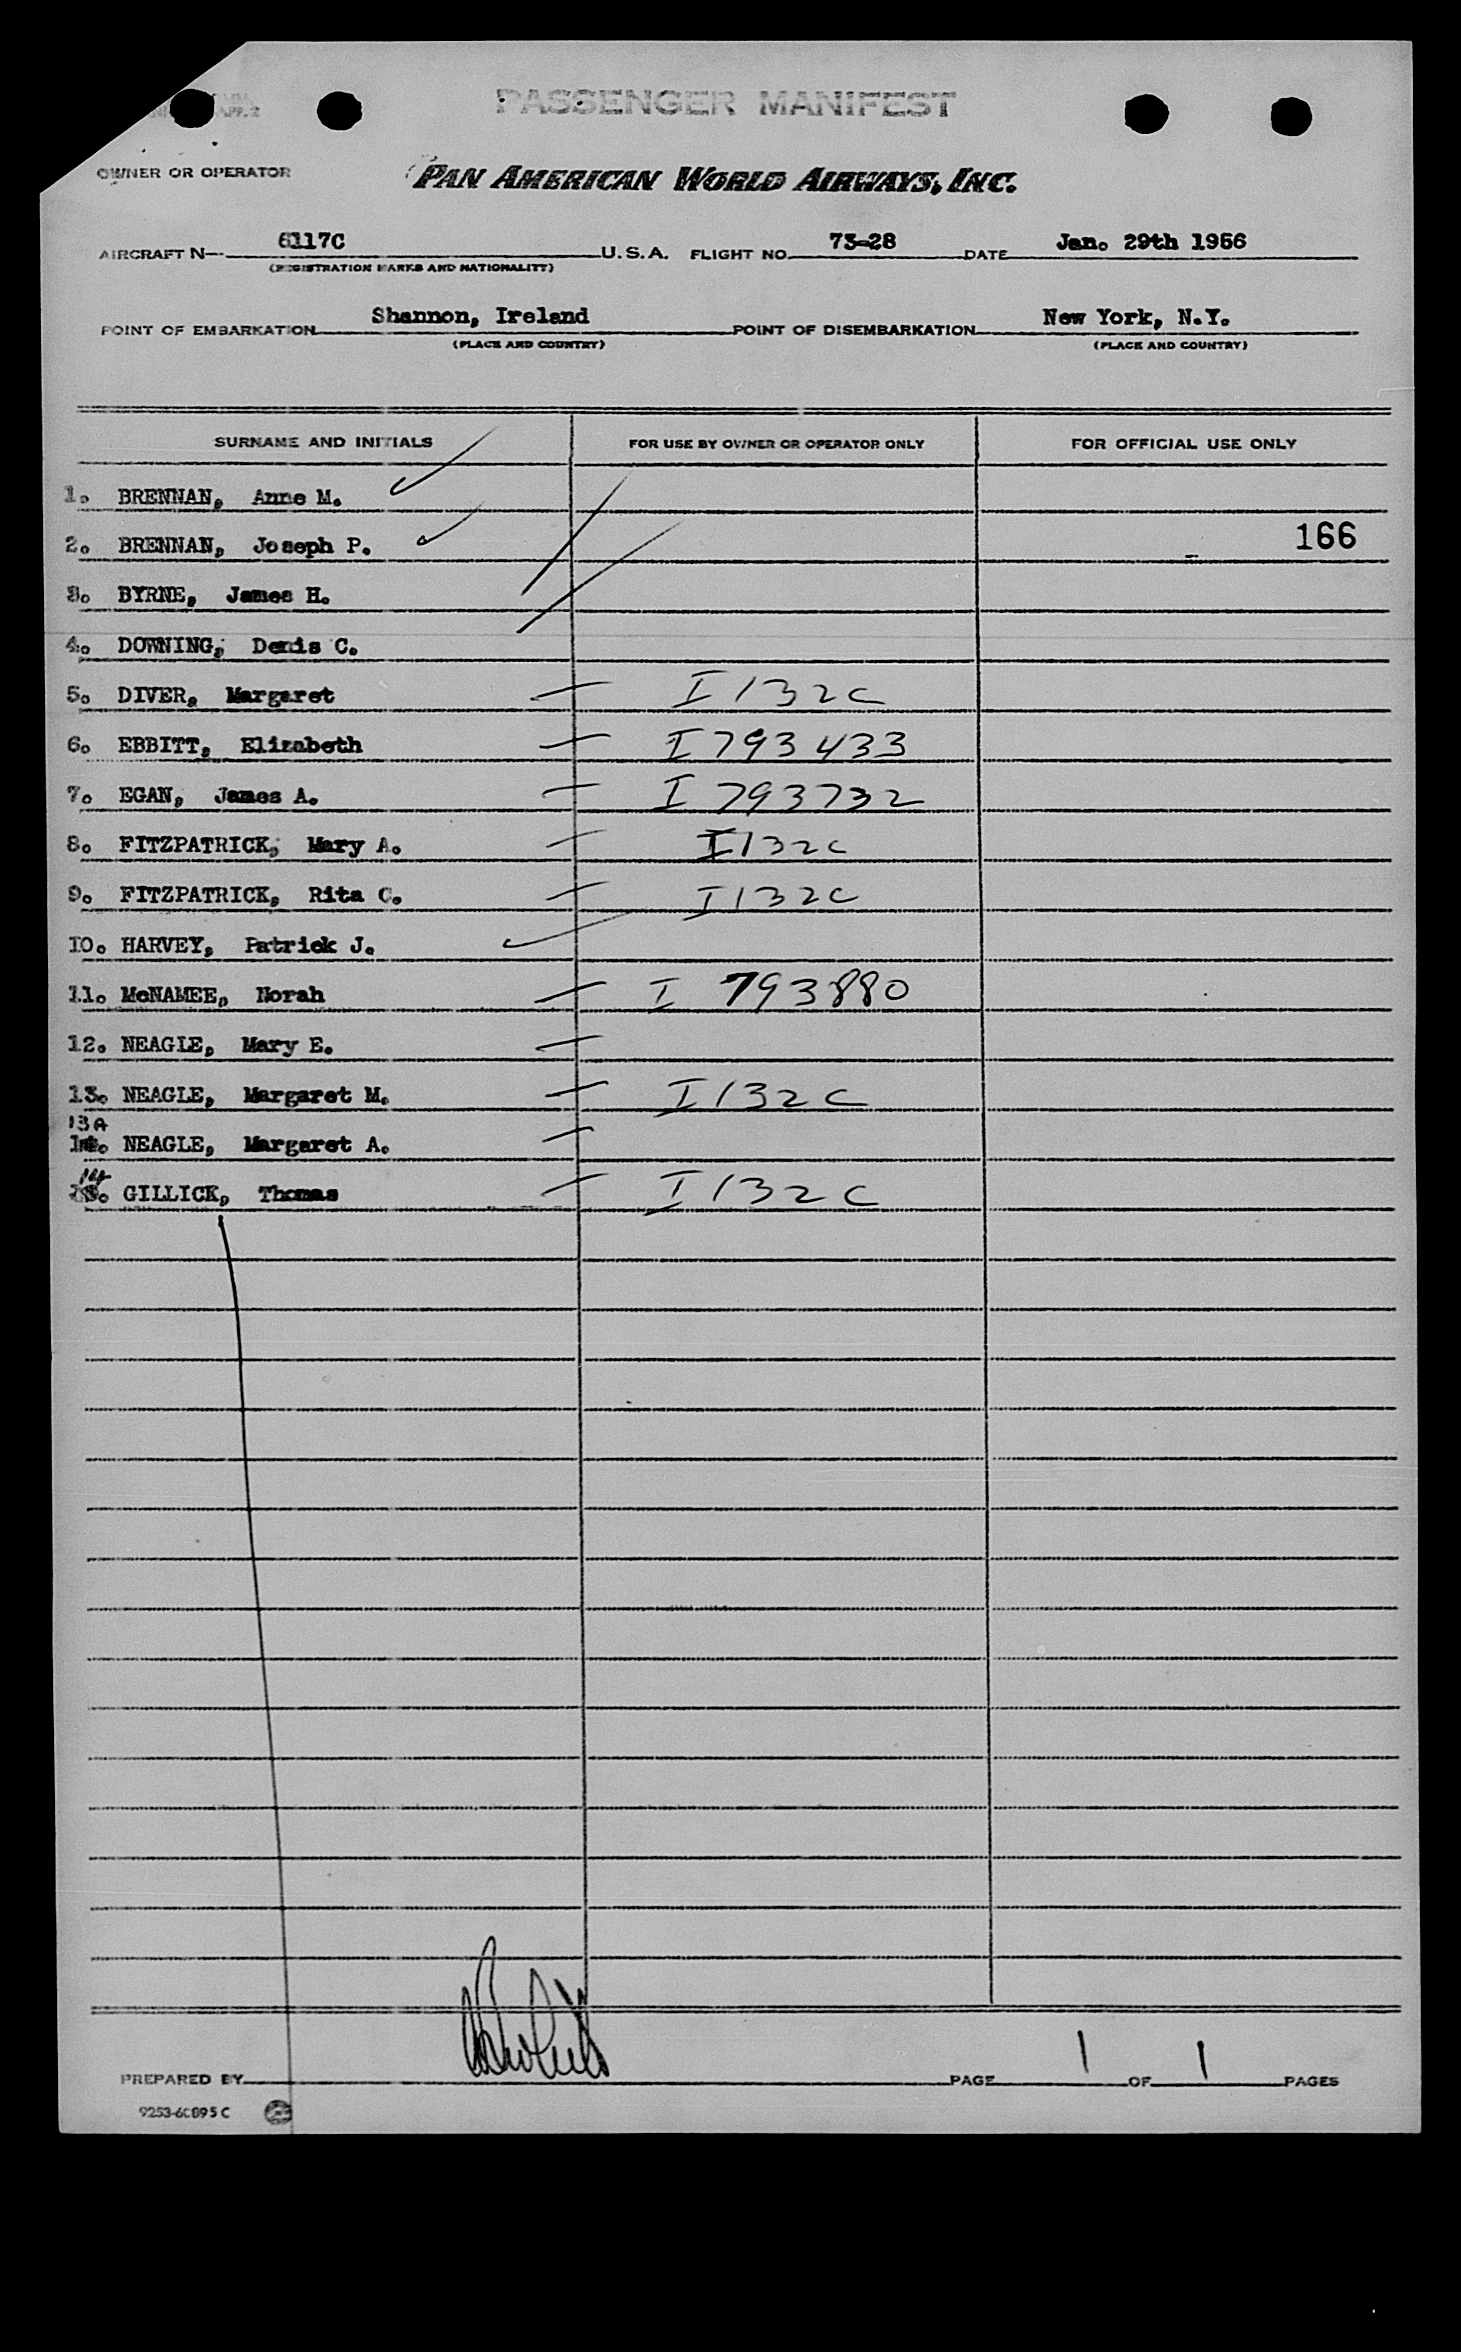 PASSENGER MANIFEST
APP. 2
OWNER OR OPERATOR PAN AMERICAN WORLD AIRWAYS, INC.
AIRCRAFT N— 6117C U.S.A. FLIGHT NO. 73-28 DATE Jan. 29th 1956
(REGISTRATION MARKS AND NATIONALITY)
POINT OF EMBARKATION Shannon, Ireland POINT OF DISEMBARKATION New York, N.Y.
(PLACE AND COUNTRY) (PLACE AND COUNTRY)
SURNAME AND INITIALS FOR USE BY OWNER OR OPERATOR ONLY FOR OFFICIAL USE ONLY
1. BRENNAN, Anne M.
2. BRENNAN, Joseph P. 166
3. BYRNE, James H.
4. DOWNING, Denis C.
5. DIVER, Margaret I 132C
6. EBBITT, Elizabeth I 793 433
7. EGAN, James A. I 793732
8. FITZPATRICK, Mary A. I 132C
9. FITZPATRICK, Rita C. I 132C
10. HARVEY, Patrick J.
11. McNAMEE, Norah I 793880
12. NEAGLE, Mary E.
13. NEAGLE, Margaret M. I 132C
13A
14. NEAGLE, Margaret A.
14
15. GILLICK, Thomas I 132C
PREPARED BY PAGE 1 OF 1 PAGES
9253-60895C